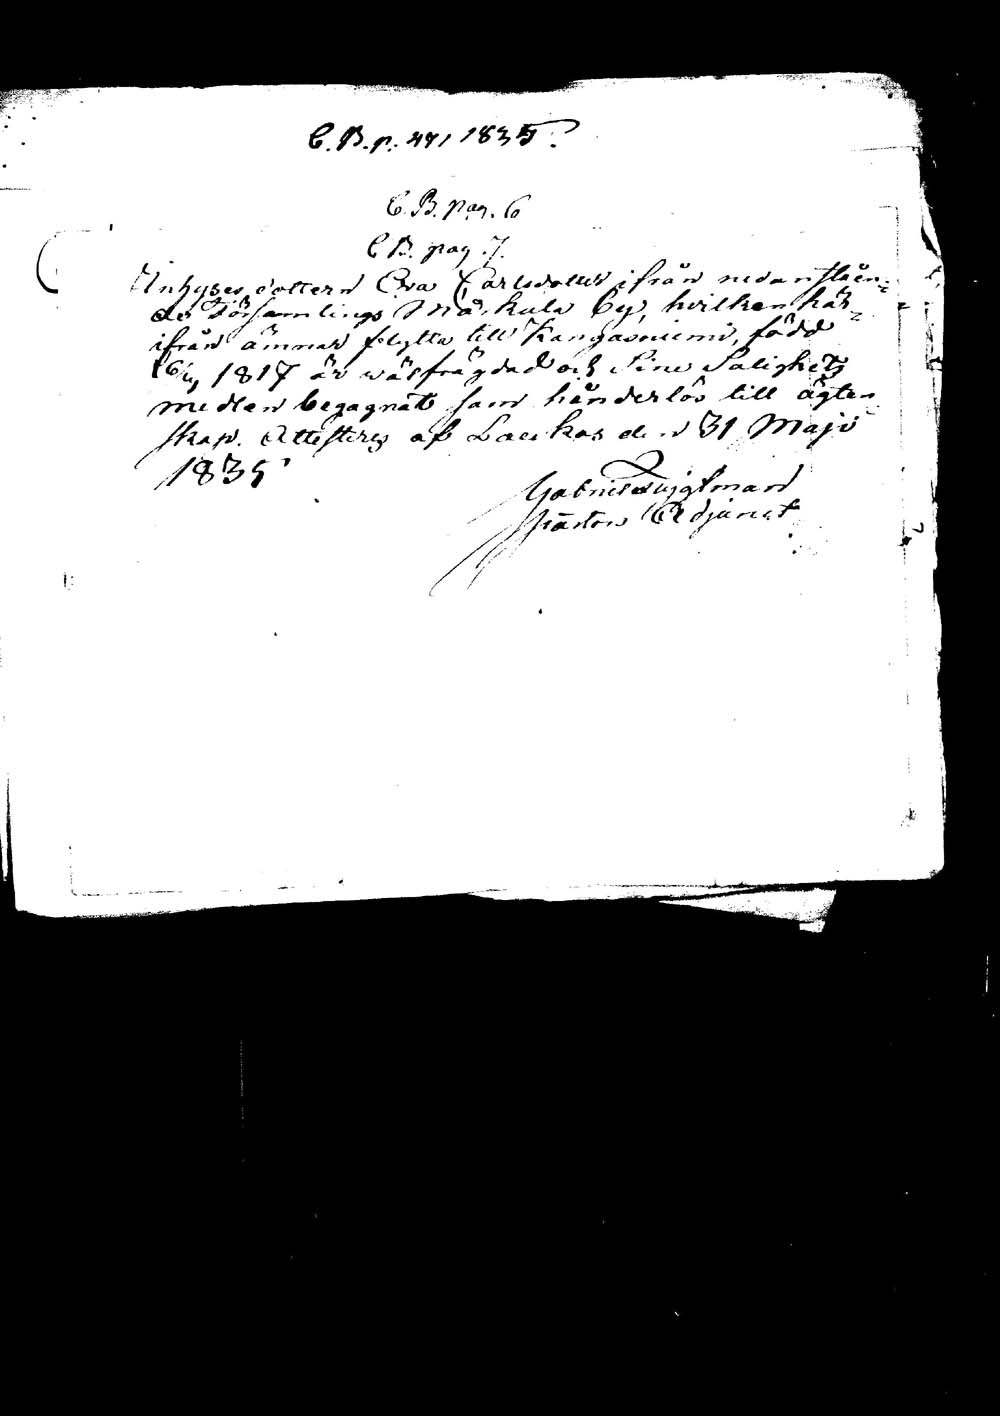 C. B. p. 471 1835.
C. B. pag. 6
C B. pag. 7.
Inhyses dottern Eva Carlsdotter ifrån nedanståen-
de Församlings Mäskula by, hvilken här-
ifrån ämnar flytta till Kangasniemi, född
1817 är wälfrägdad och Sine Salighets
medlen begagnat samt hinderlös till ägten-
skap. Attesteres af Laukas den 31 Maji
1835
Gabriel
Pastors Adjunct